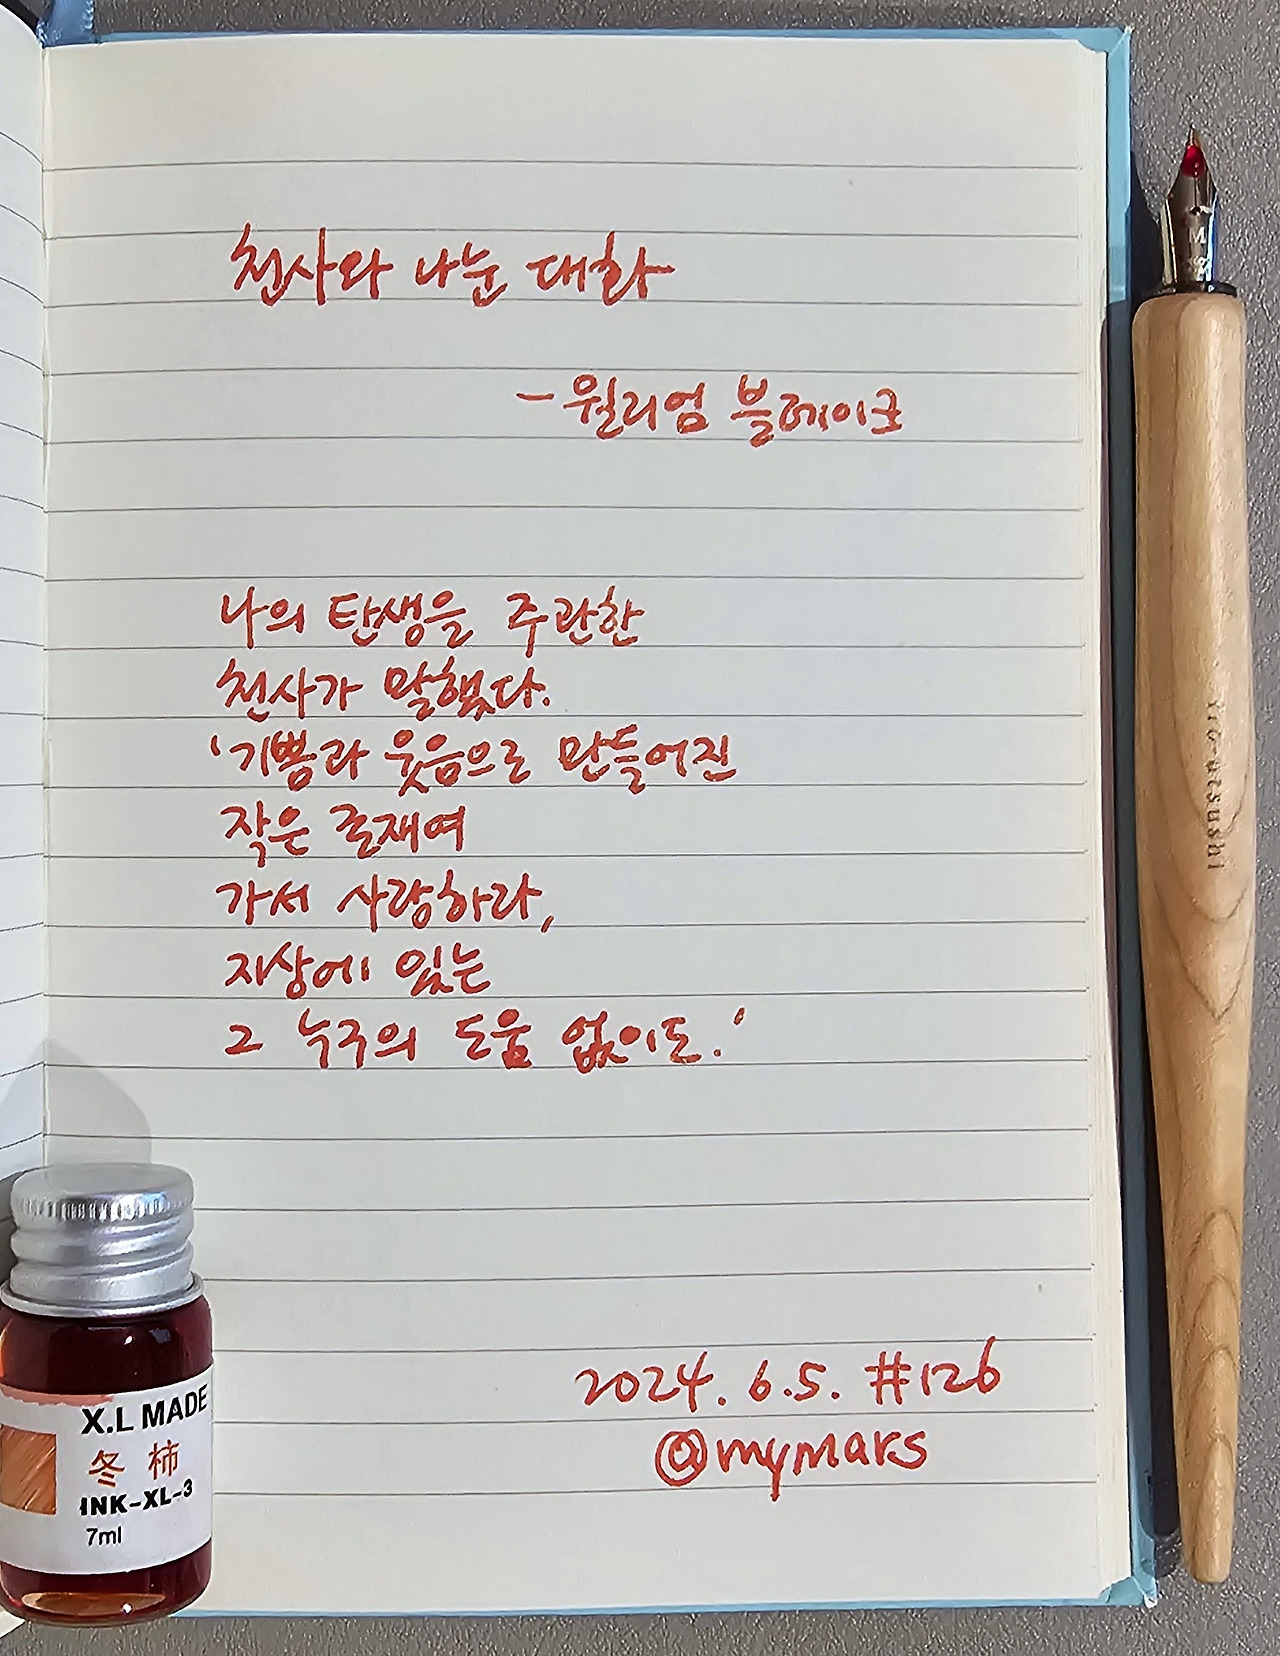 천사와 나눈 대화
- 윌리엄 블레이크
나의 탄생을 주관한
천사가 말했다.
'기쁨과 웃음으로 만들어진
작은 존재여
가서 사랑하라,
지상에 있는
그 누구의 도움 없이도.'
2024. 6. 5. #126
@mymars
X.L MADE
冬柿
INK-XL-3
7ml
M
iro-utsushi